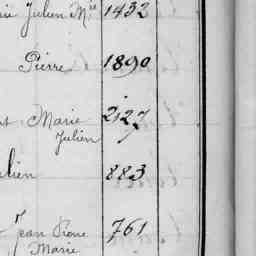 Julien Mie 1432
Pierre 1890
Marie 2127
Julien
lien 883
Jean Pierre 761
Marie